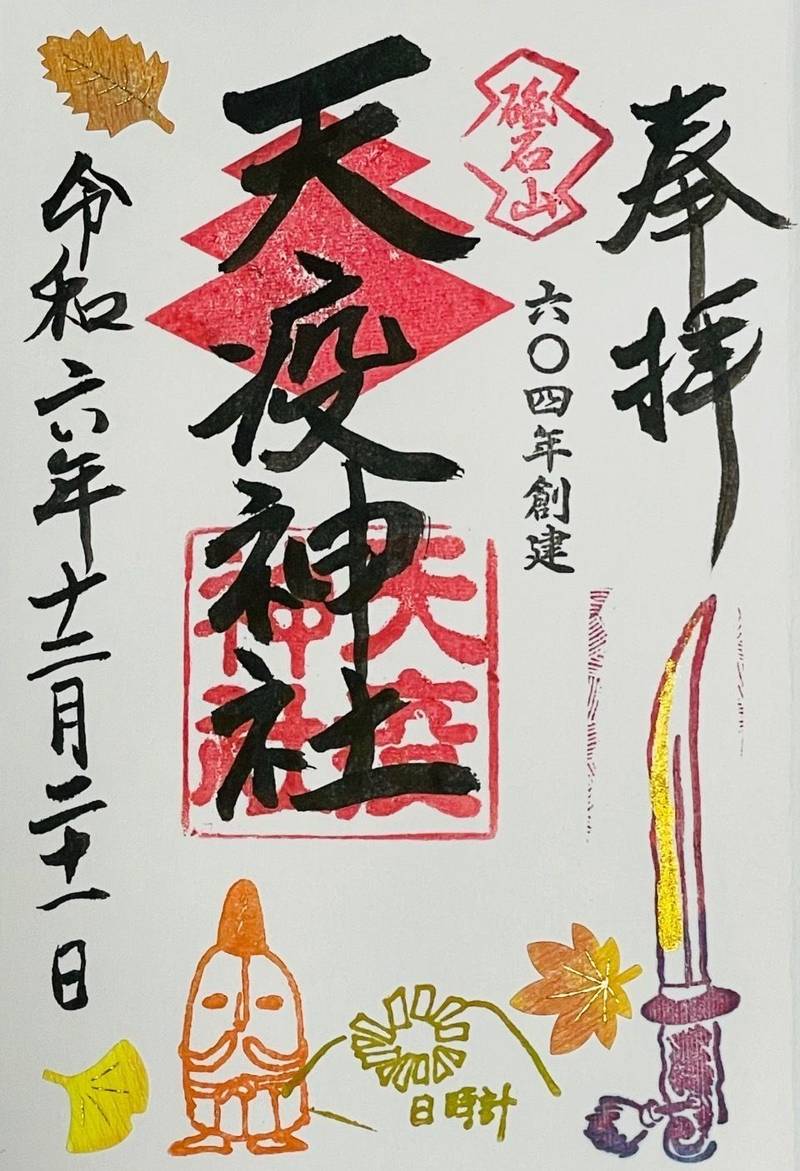 奉拝
砥石山
六〇四年創建
天疫神社
天疫
神社
令和六年十二月二十一日
日時計